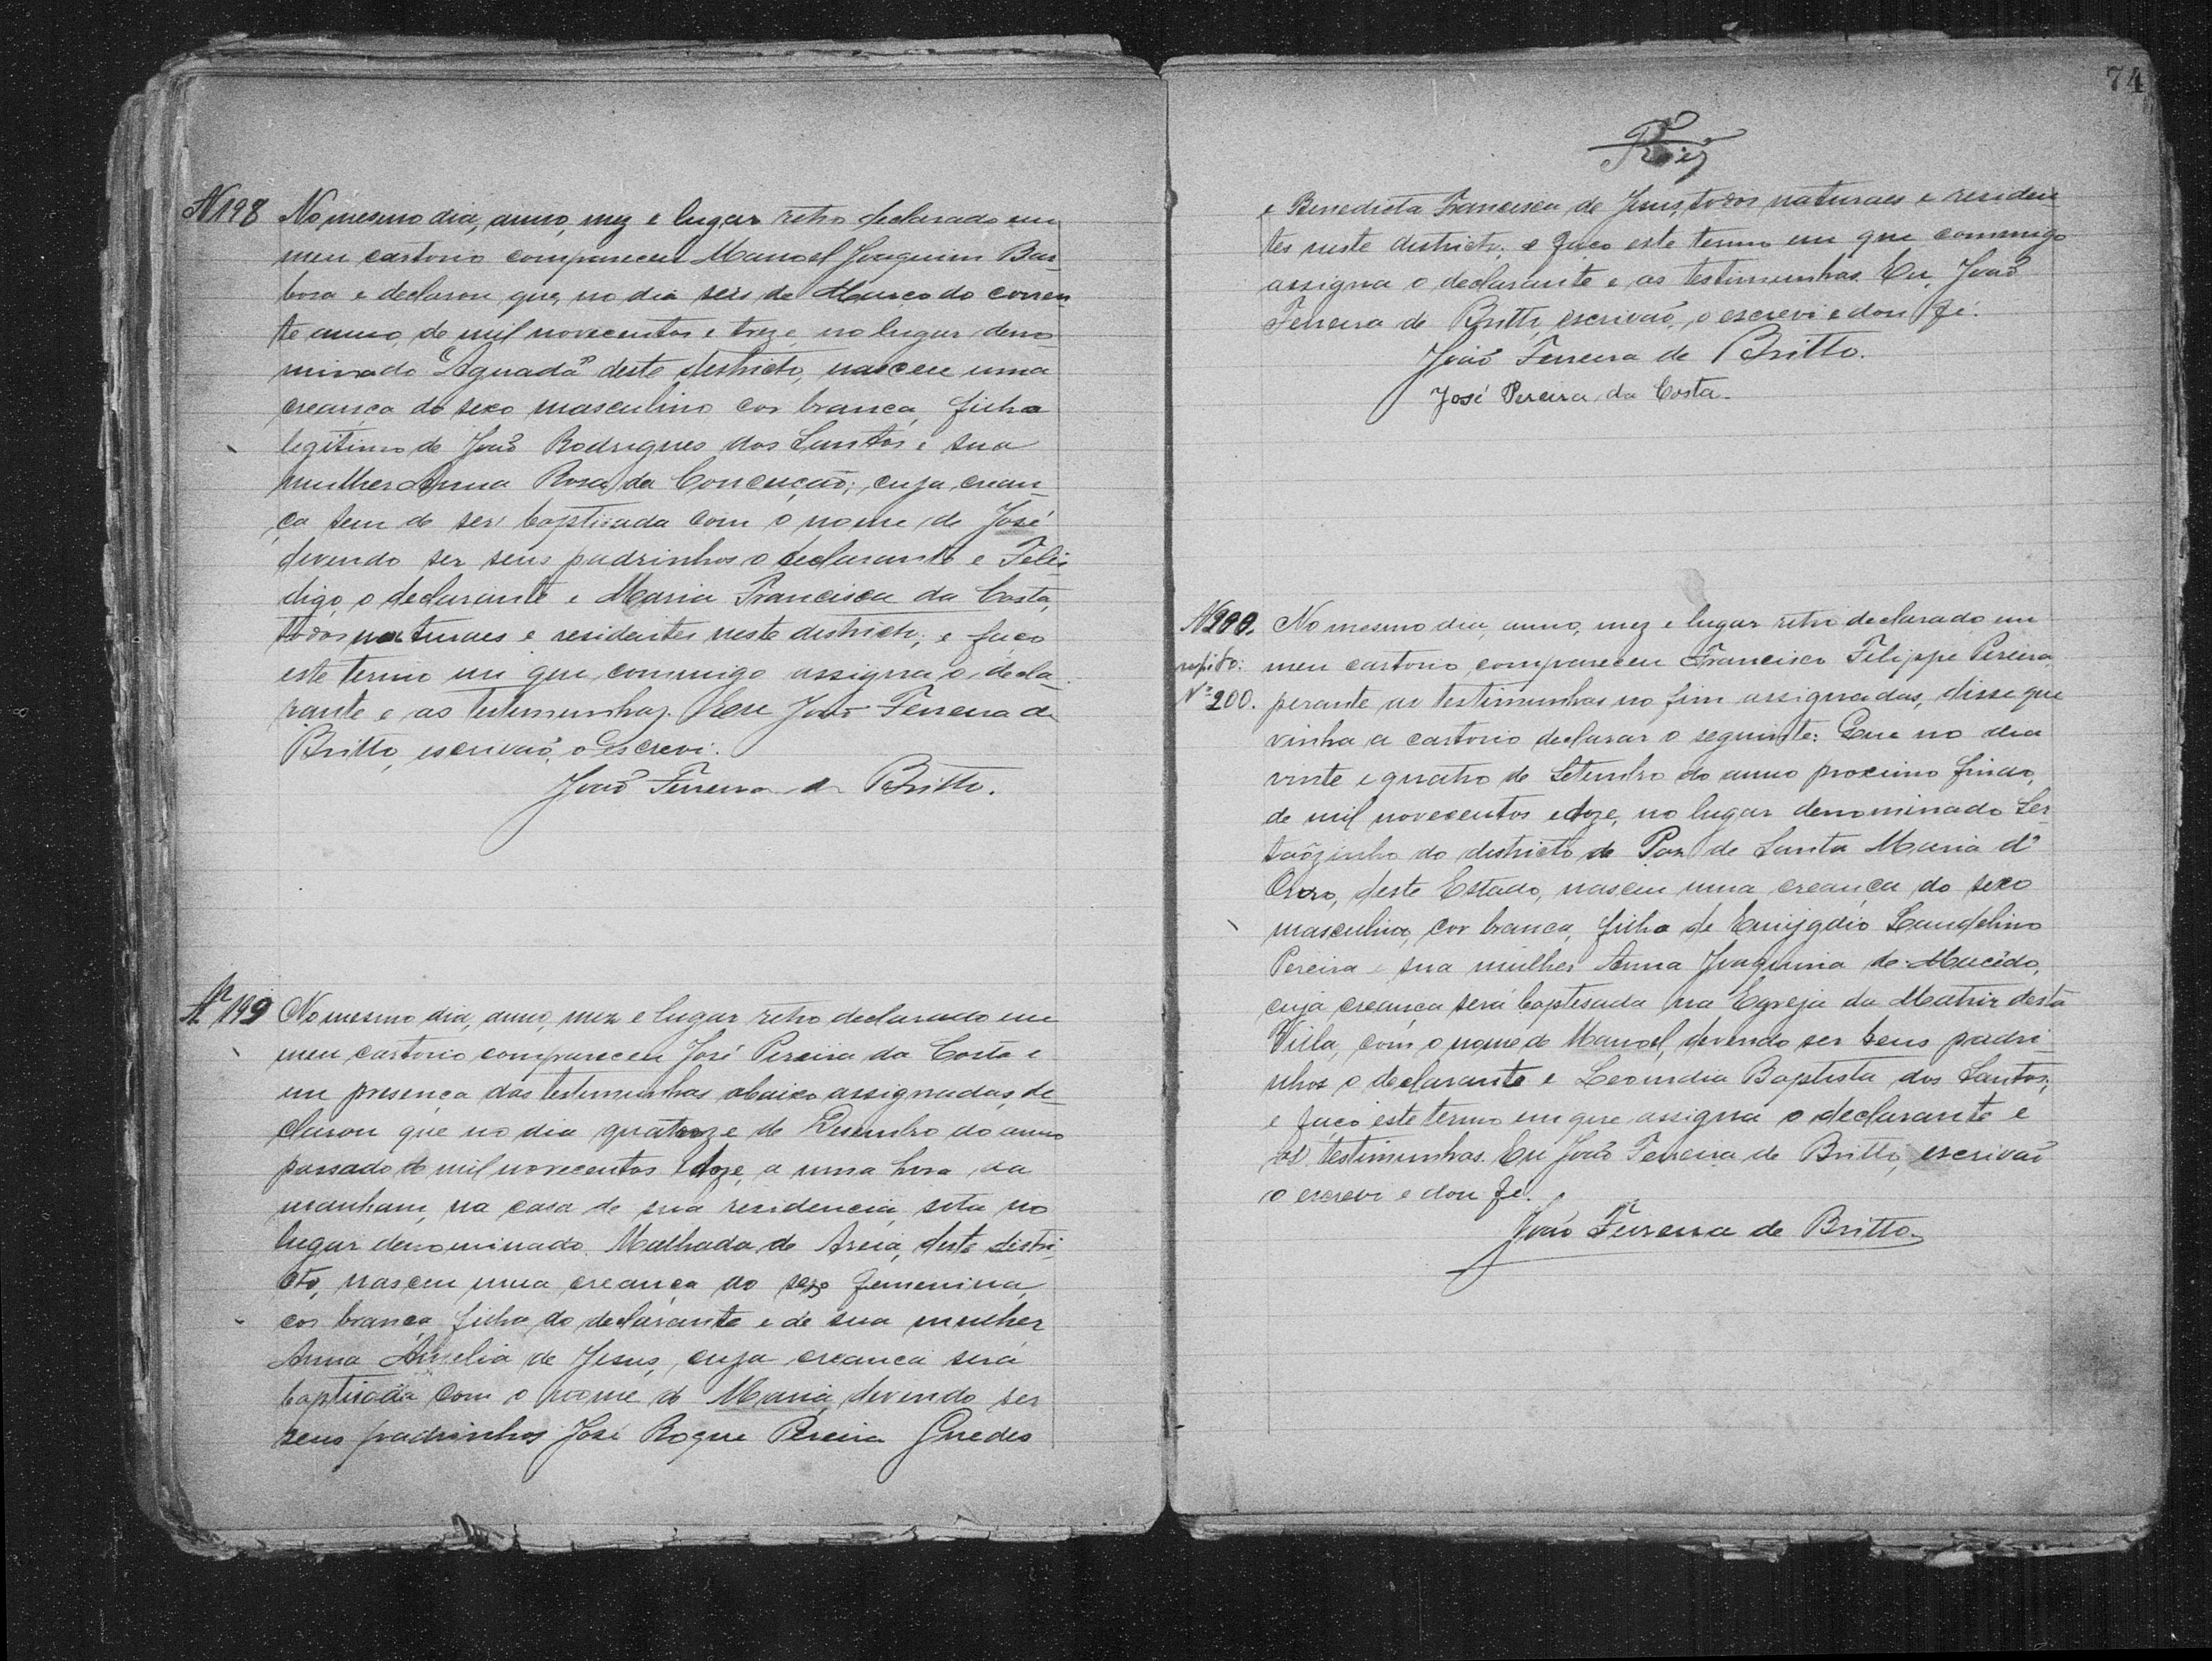 N 198 No mesmo dia, anno, mez e lugar retro declarado em
meu cartorio compareceu Manoel Joaquim Bar-
bosa e declarou que, no dia seis de Março do corren-
te anno, de mil novecentos e treze, no lugar deno-
minado "Aguada" deste districto, nasceu uma
creança do sexo masculino cor branca, filha
legitimo de João Rodrigues dos Santos e sua
mulher Anna Rosa da Conceição; cuja crean-
ça tem de ser baptisada com o nome de José
devendo ser seus padrinhos o declarante e Feli-
digo, o declarante e Maria Francisca da Costa,
todos naturaes e residentes neste districto; e faço
este termo em que commigo assigna o decla-
rante e as testemunhas. Eu João Ferreira de
Britto, escrivaõ, o escrevi.
João Ferreira de Britto.
N 199 No mesmo dia, anno, mez e lugar retro declarado em
meu cartorio compareceu José Pereira da Costa e
em presença das testemunhas abaixo assignadas, de-
clarou que no dia quatorze de Desembro do anno
passado de mil novecentos e doze, a uma hora da
manham, na casa de sua residencia sita no
lugar denominado Malhada de Areia, deste distri-
cto, nasceu uma creança do sexo femenina,
cor branca, filha do declarante e de sua mulher
Anna Amelia de Jesus, cuja creanca será
baptisada com o nome de Maria, devendo ser
seus padrinhos José Roque Pereira Guedes
74
e Benedicta Francisca de Jesus, todos naturaes e residen-
tes neste districto; e faço este termo em que commigo
assigna o declarante e as testimunhas. Eu, João
Ferreira de Britto, escrivaõ, o escrevi e dou fé.
João Ferreira de Britto.
José Pereira da Costa.
N 200. No mesmo dia, anno, mez e lugar retro declarado em
repito: meu cartorio, compareceu Francisco Felippe Pereira,
Nº 200. perante as testimunhas no fim assignadas, disse que
vinha a cartorio declarar o seguinte: Que no dia
vinte e quatro de Setembro do anno proximo findo,
de mil novecentos e doze, no lugar denominado Ser-
taõzinho do districto de Paz de Santa Maria d'
Ouro, deste Estado, nasceu uma creança do sexo
masculino, cor branca, filha de Emijgdio Laudelino
Pereira e sua mulher Anna Joaquina de Macêdo,
cuja creança será baptisada na Egreja da Matriz desta
Villa, com o nome de Manoel, devendo ser seus padri-
nhos o declarante e Leovidia Baptista dos Santos;
e faço este termo em que assigna o declarante e
as testimunhas. Eu João Ferreira de Britto, escrivaõ
o escrevi e dou fé.
João Ferreira de Britto.